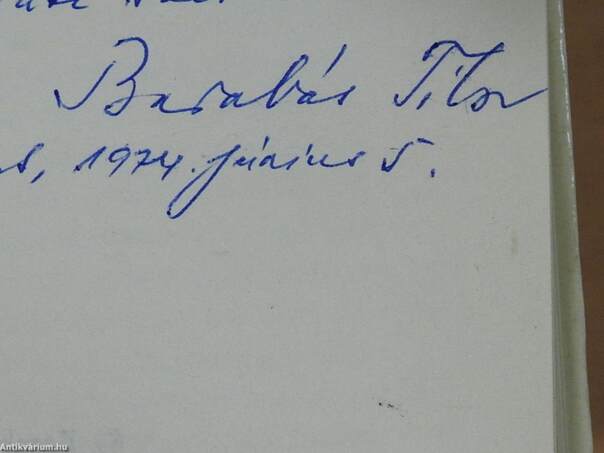 Barabás Tibor
s, 1974. június 5.
Antikvárium.hu